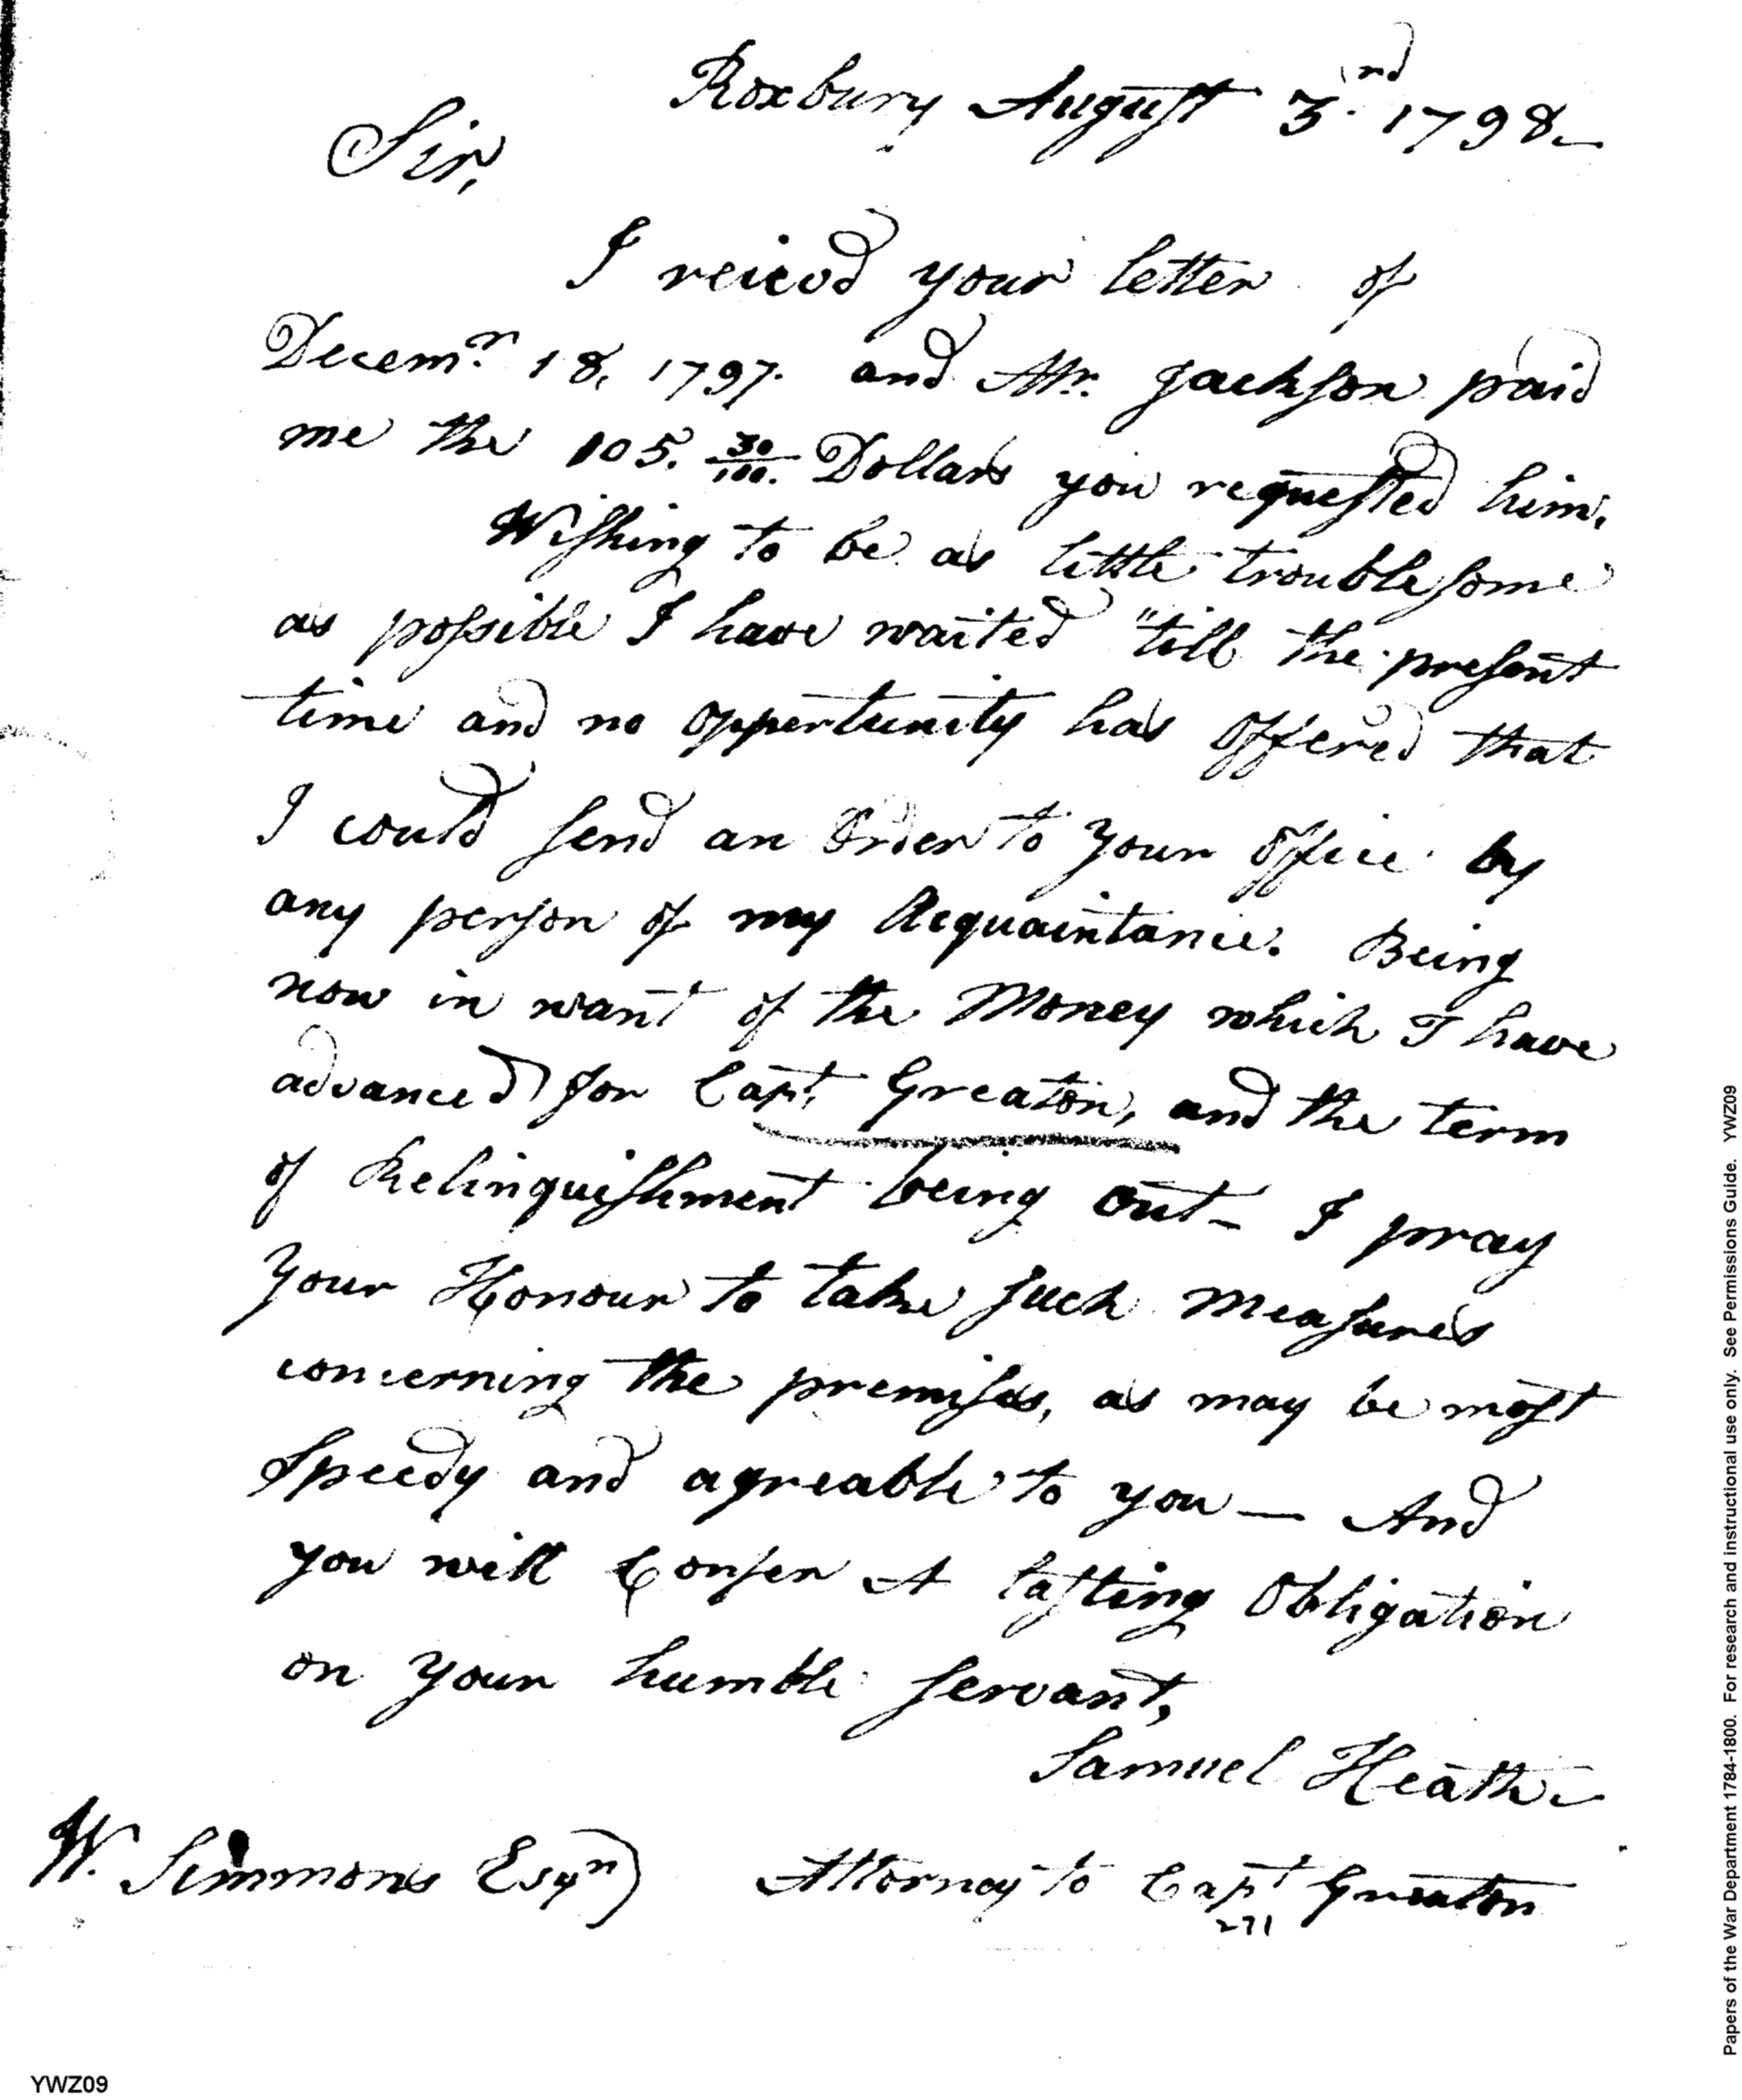 Roxbury August 3.nd 1798
Sir,
I reicvd your letter of
Decemr. 18, 1797. and Mr. Jackson paid
me the 105. 30/100. Dollars you requested him.
Wishing to be as little troublesome
as possible I have waited "till the present
time and no oppertunity has offered that
I could send an Order to your office by
any person of my Acquaintance. Being
now in want of the Money which I have
advanced for Capt. Greaton, and the term
of Relinquishment being out - I pray
Your Honour to take such Measures
concerning the premises, as may be most
speedy and agreable to you — And
you will Confer A lasting Obligation
on your humble servant,
Samuel Heath
W. Simmons Esqr)
Attorney to Capt Greaton
271
Papers of the War Department 1784-1800. For research and instructional use only. See Permissions Guide. YWZ09
YWZ09